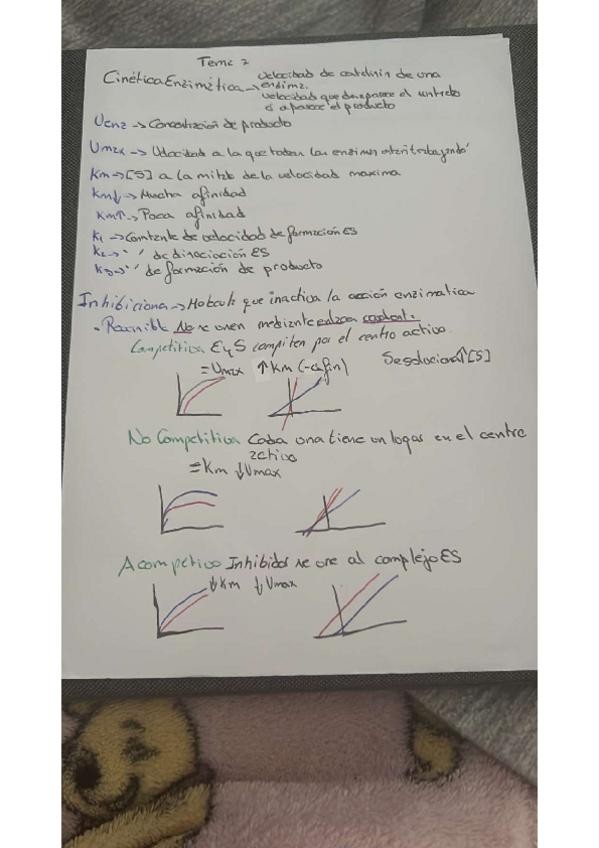 Tema 7
Cinética Enzimática → Velocidad de catálisis de una
enzima.
velocidad que desaparece el sustrato
o aparece el producto
→ Concentración de producto
Umax → Velocidad a la que todas las enzimas están trabajando
Km → [S] a la mitad de la velocidad maxima
Km↓ → Mucha afinidad
Km↑ → Poca afinidad
K1 → Constante de velocidad de formación ES
K2 → '' de disociación ES
K3 → '' de formación de producto
→ Molecula que inactiva la acción enzimatica
No se unen mediante enlace
Competitiva E y S compiten por el centro activo
= Umax ↑ Km (-afin)
Se soluciona ↑[S]
No Competitiva Cada una tiene un lugar en el centro
activo
= Km ↓Umax
Acompetivo Inhibidor se une al complejo ES
↓Km ↓Umax